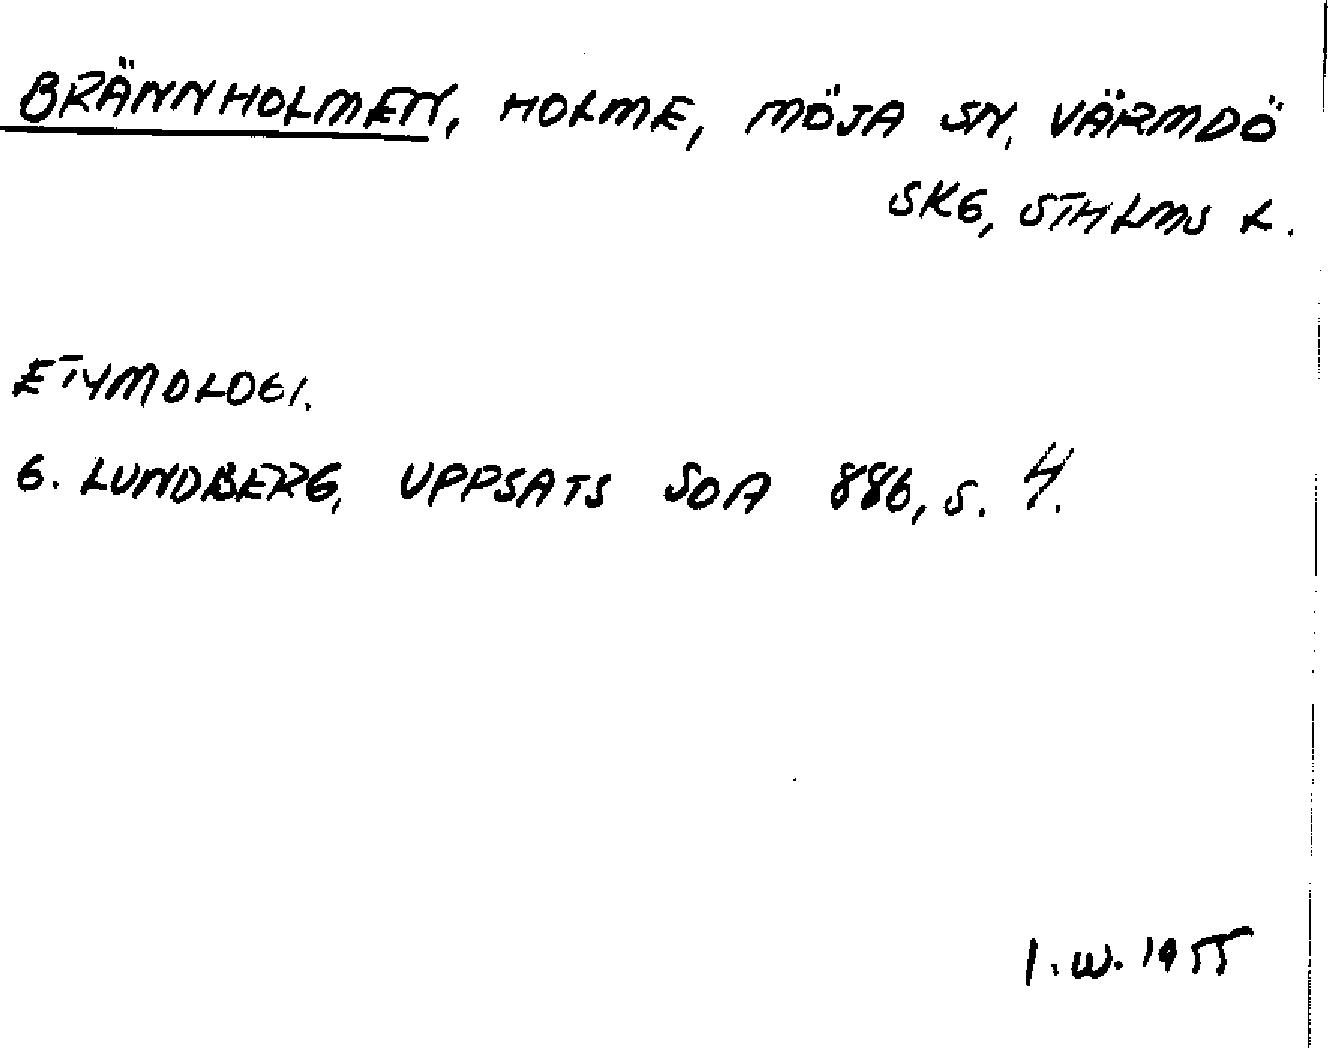 BRÄNNHOLMEN, HOLME, MÖJA SN, VÄRMDÖ
SKG, STHLMS L.
ETYMOLOGI.
G. LUNDBERG, UPPSATS SOA 886, S. 4.
I.W. 1955